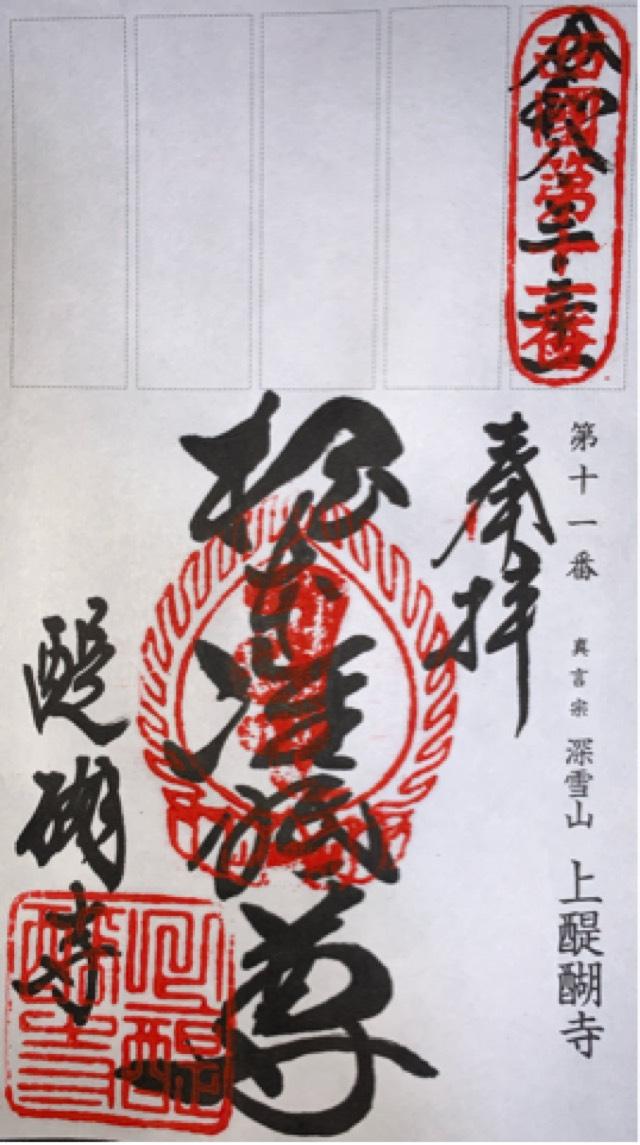 西國第十一番
令和八
第十一番 真言宗 深雪山 上醍醐寺
奉拝
根本准胝尊
醍醐寺